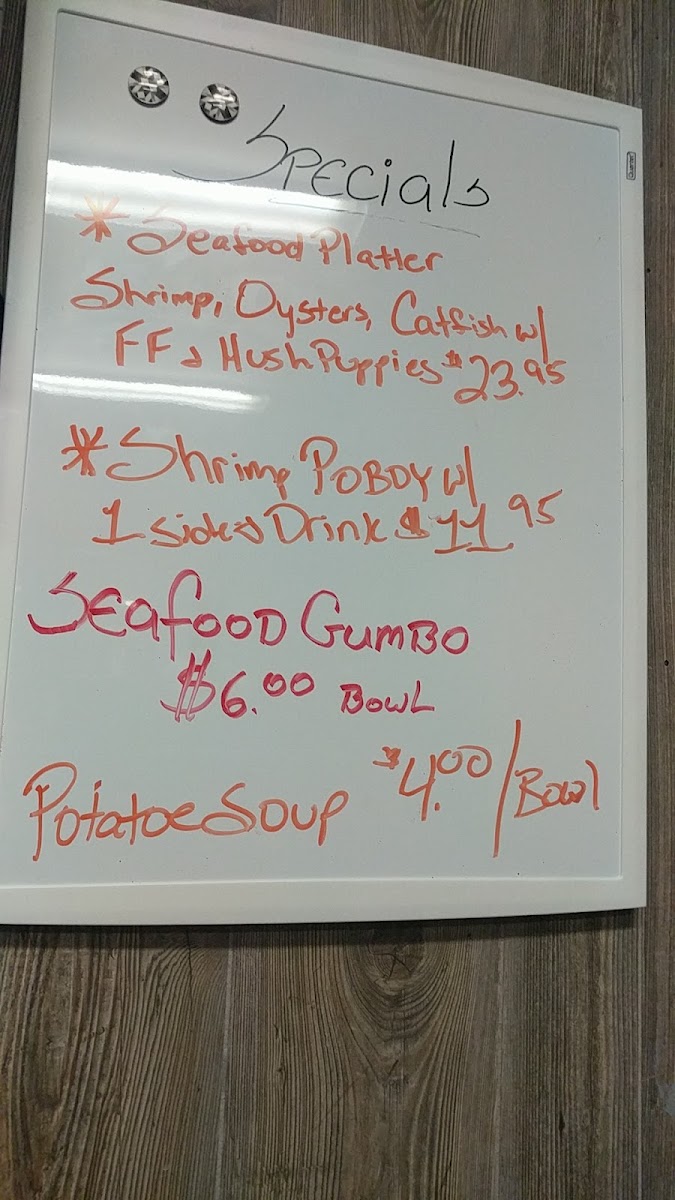 Specials
* Seafood Platter
Shrimp, Oysters, Catfish w/
FF & Hush Puppies $23.95
* Shrimp POBOY w/
1 side & Drink $11.95
SEafOOD GUMBO
$6.00 BOWL
Potatoe Soup $4.00/Bowl
Quartet